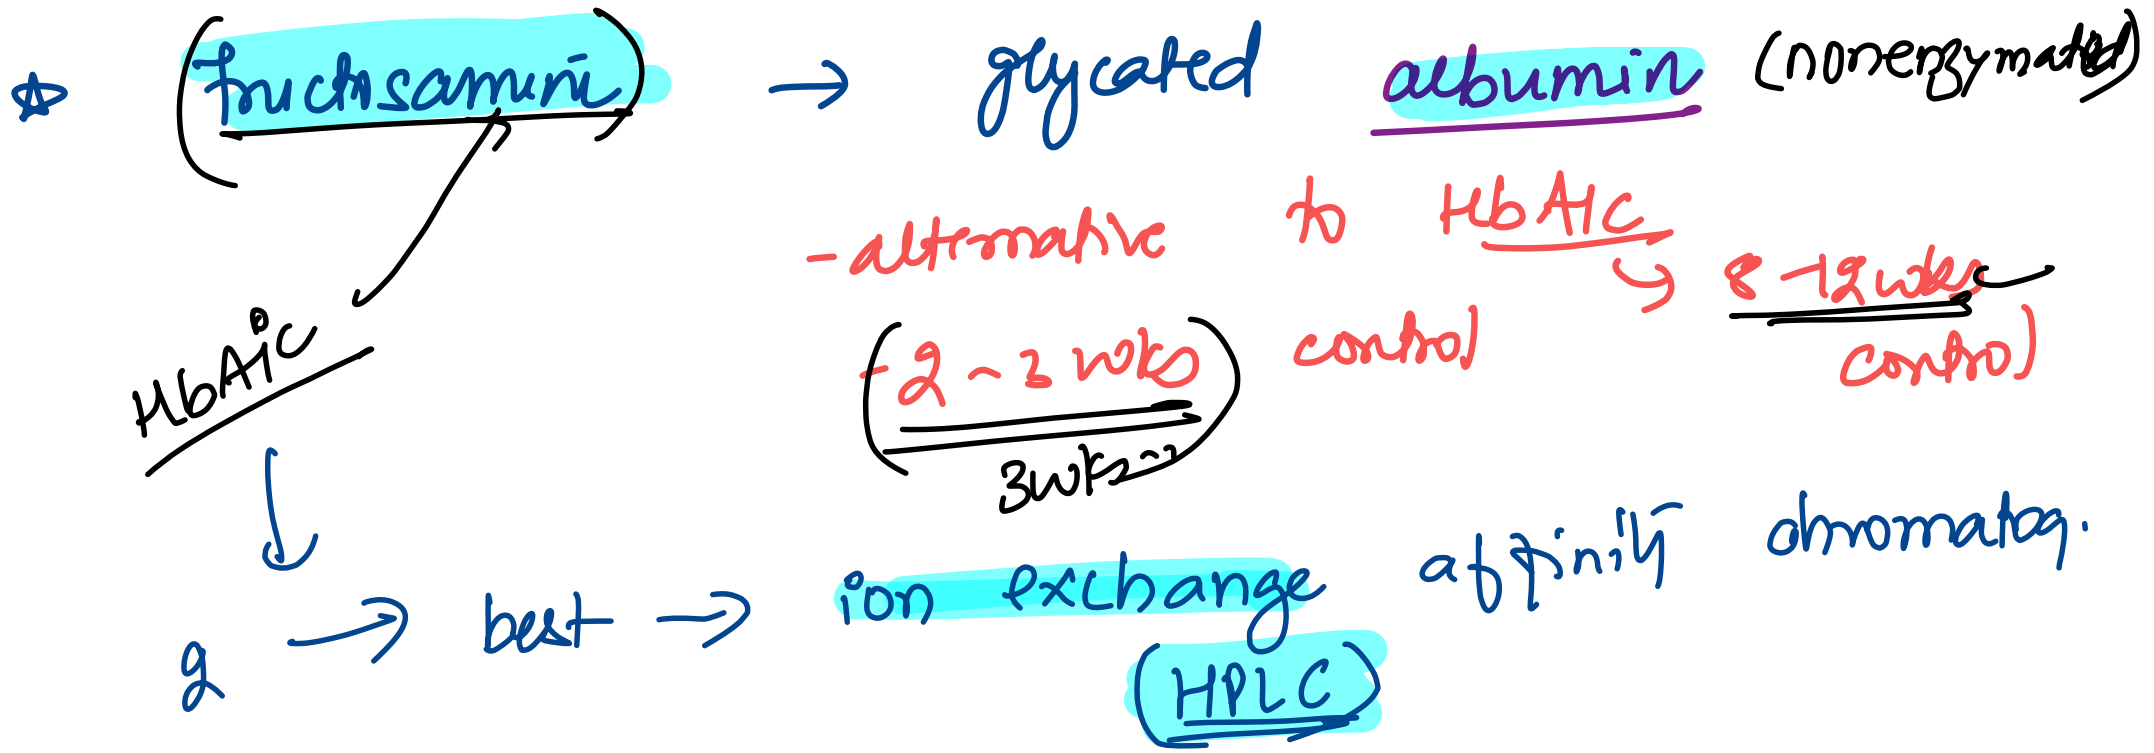 ☆ (fructosamine) → glycated albumin (nonenzymated)
- alternative to HbA1c
↳ 8-12 wks control
(- 2-3 wks) control
3wks
HbA1c
↓
g → best → ion exchange affinity chromatog.
(HPLC)